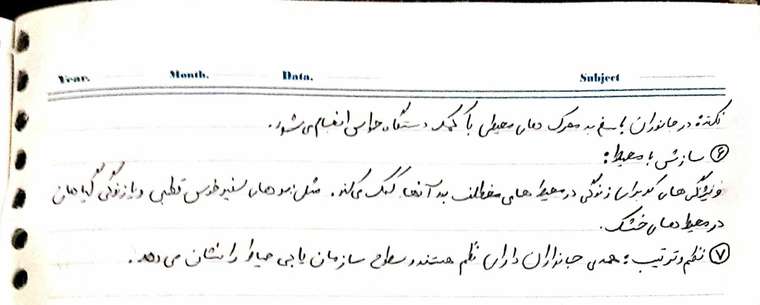 Year. Month. Data. Subject
نکته: در جانوران پاسخ به محرک های محیطی با کمک دستگاه حواس انجام می شود.
⑥ سازش با محیط:
ویژگی هایی که برای زندگی در محیط های مختلف به آنها کمک می کند. مثل: موهای سفید خرس قطبی و یا زندگی گیاهان
در محیط های خشک.
⑦ نظم و ترتیب: همه ی جانداران دارای نظم هستند و سطوح سازمان یابی حیات را نشان می دهد.